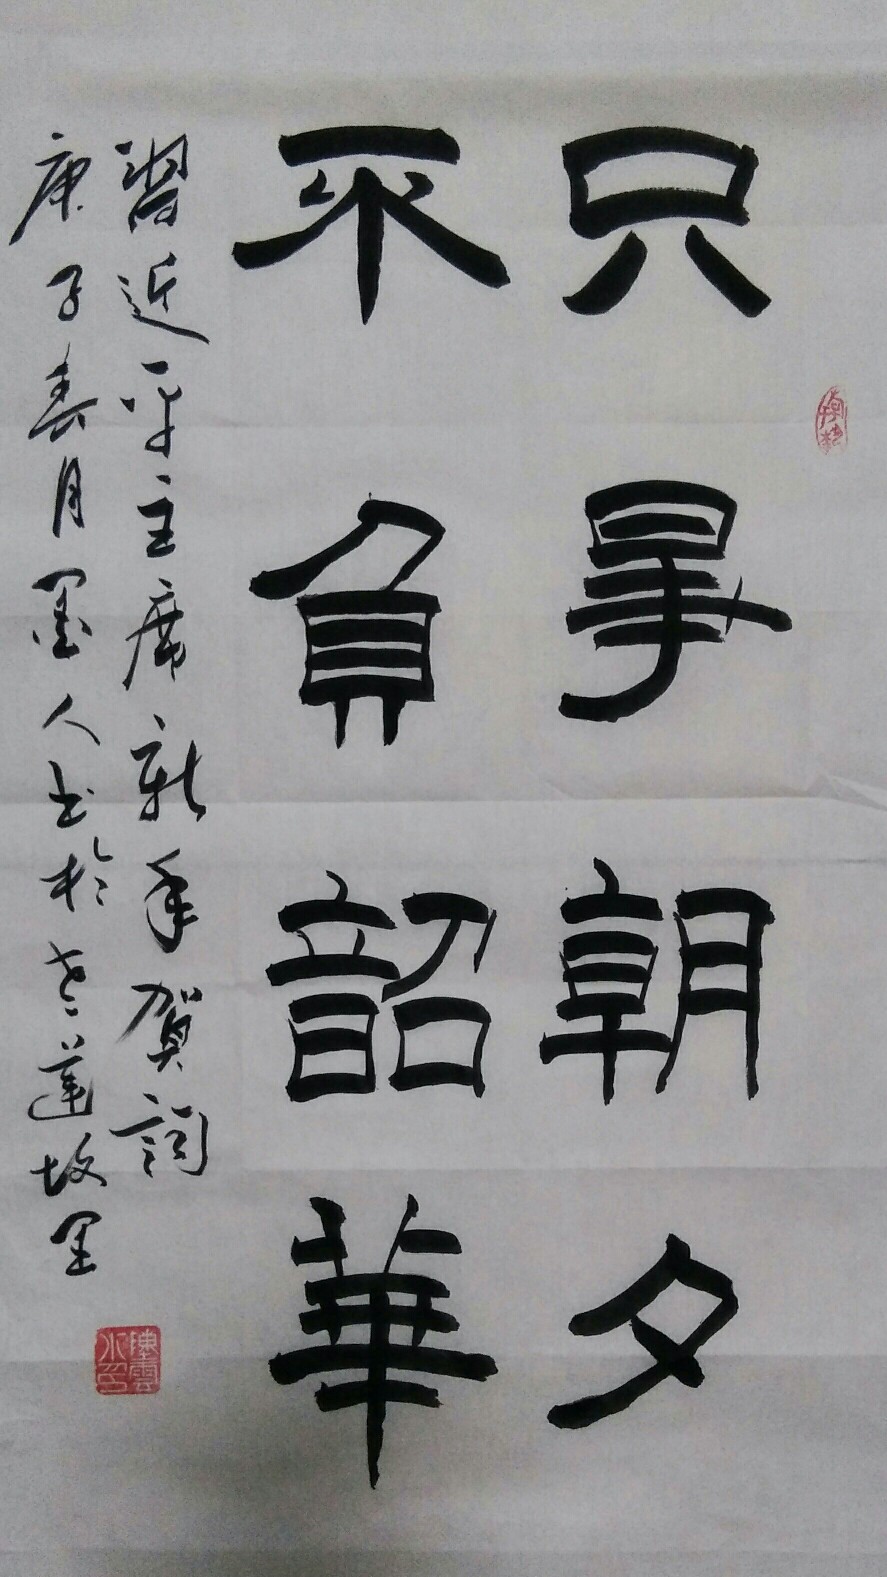 只争朝夕
不負韶華
習近平主席新年賀詞
庚子春月墨人书於老蓮故里
陳雲水印